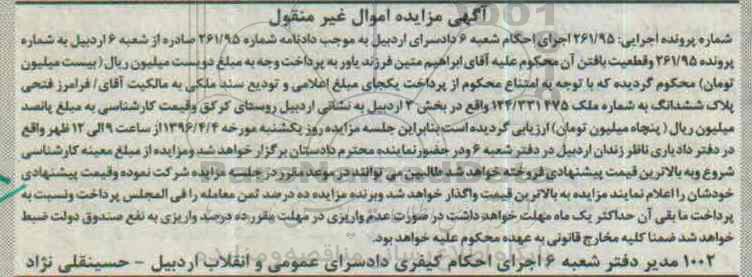 آگهی مزایده اموال غیر منقول
شماره پرونده اجرایی: ۲۶۱/۹۵ اجرای احکام شعبه ۶ دادسرای اردبیل به موجب دادنامه شماره ۲۶۱/۹۵ صادره از شعبه ۶ اردبیل به شماره
پرونده ۲۶۱/۹۵ وقطعیت یافتن آن محکوم علیه آقای ابراهیم متین فرزند یاور به پرداخت وجه به مبلغ دویست میلیون ریال (بیست میلیون
تومان) محکوم گردیده که با توجه به امتناع محکوم از پرداخت یکجای مبلغ اعلامی و تودیع سند ملکی به مالکیت آقای/ فرامرز فتحی
پلاک ششدانگ به شماره ملک ۱۲۴/۳۳۱۴۷۵ واقع در بخش ۳ اردبیل به نشانی اردبیل روستای کرکق وقیمت کارشناسی به مبلغ پانصد
میلیون ریال (پنجاه میلیون تومان) ارزیابی گردیده است بنابراین جلسه مزایده روز یکشنبه مورخه ۱۳۹۶/۴/۴ از ساعت ۹ الی ۱۲ ظهر واقع
در دفتر دادیاری ناظر زندان اردبیل در دفتر شعبه ۶ ودر حضور نماینده محترم دادستان برگزار خواهد شد ومزایده از مبلغ معینه کارشناسی
شروع وبه بالاترین قیمت پیشنهادی فروخته خواهد شد طالبین می توانند در موعد مقرر در جلسه مزایده شرکت نموده وقیمت پیشنهادی
خودشان را اعلام نمایند مزایده به بالاترین قیمت واگذار خواهد شد وبرنده مزایده ده درصد ثمن معامله را فی المجلس پرداخت ونسبت به
پرداخت ما بقی آن حداکثر یک ماه مهلت خواهد داشت در صورت عدم واریزی در مهلت مقرر ده درصد واریزی به نفع صندوق دولت ضبط
خواهد شد ضمنا کلیه مخارج قانونی به عهده محکوم علیه خواهد بود.
۱۰۰۲ مدیر دفتر شعبه ۶ اجرای احکام کیفری دادسرای عمومی و انقلاب اردبیل - حسینقلی نژاد